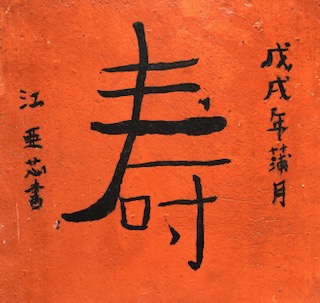 戊戌年蒲月
寿
江亚芯書